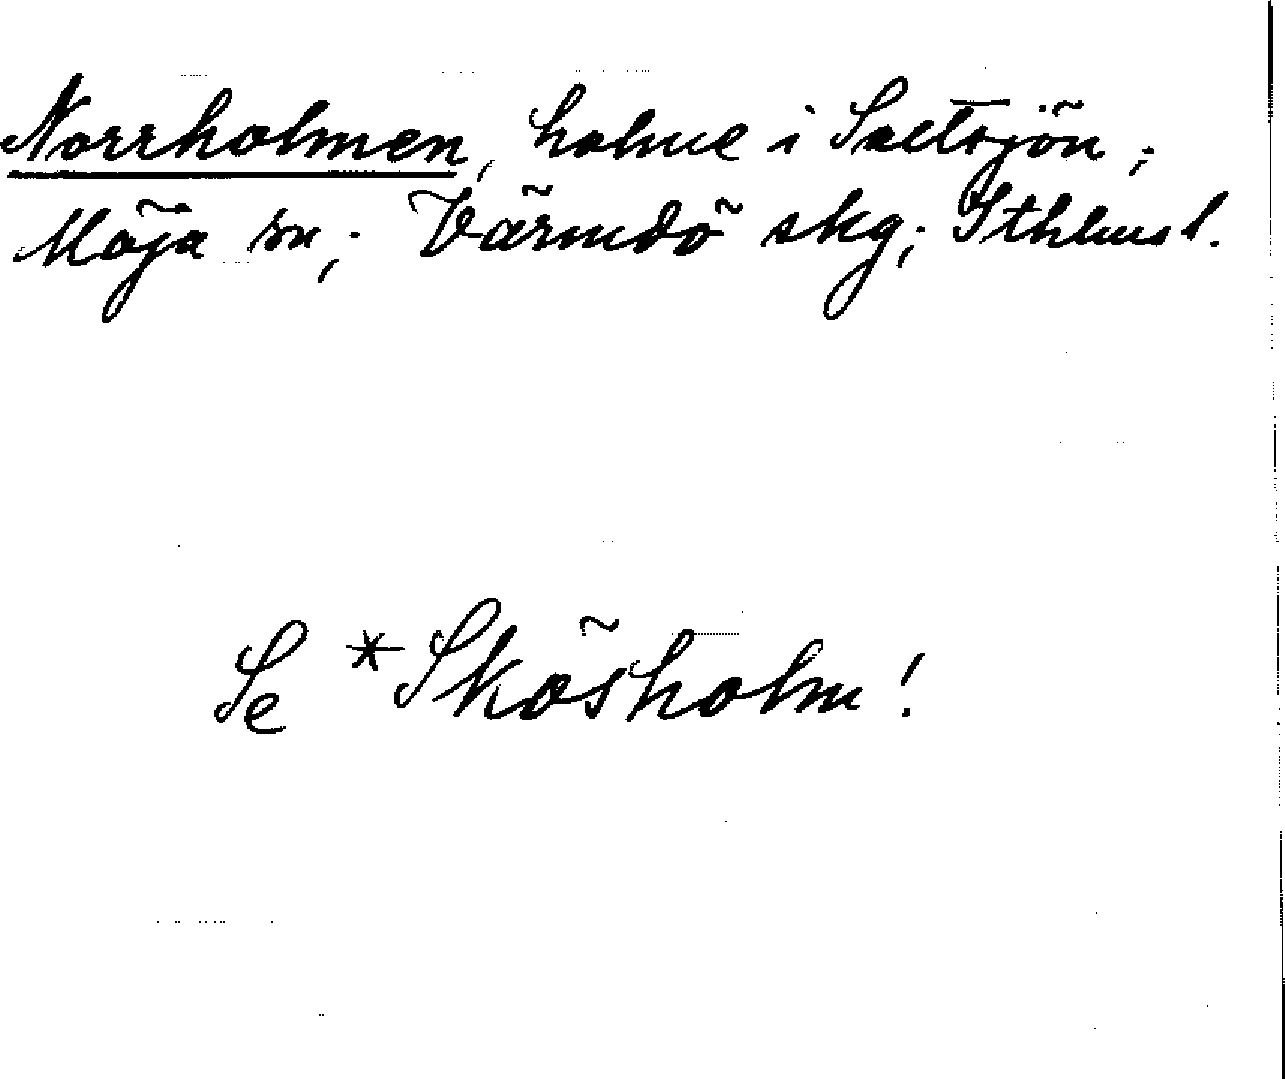 Norrholmen, holme i Saltsjön;
Möja sn; Värmdö skg; Sthlms l.
Se *Skösholm!